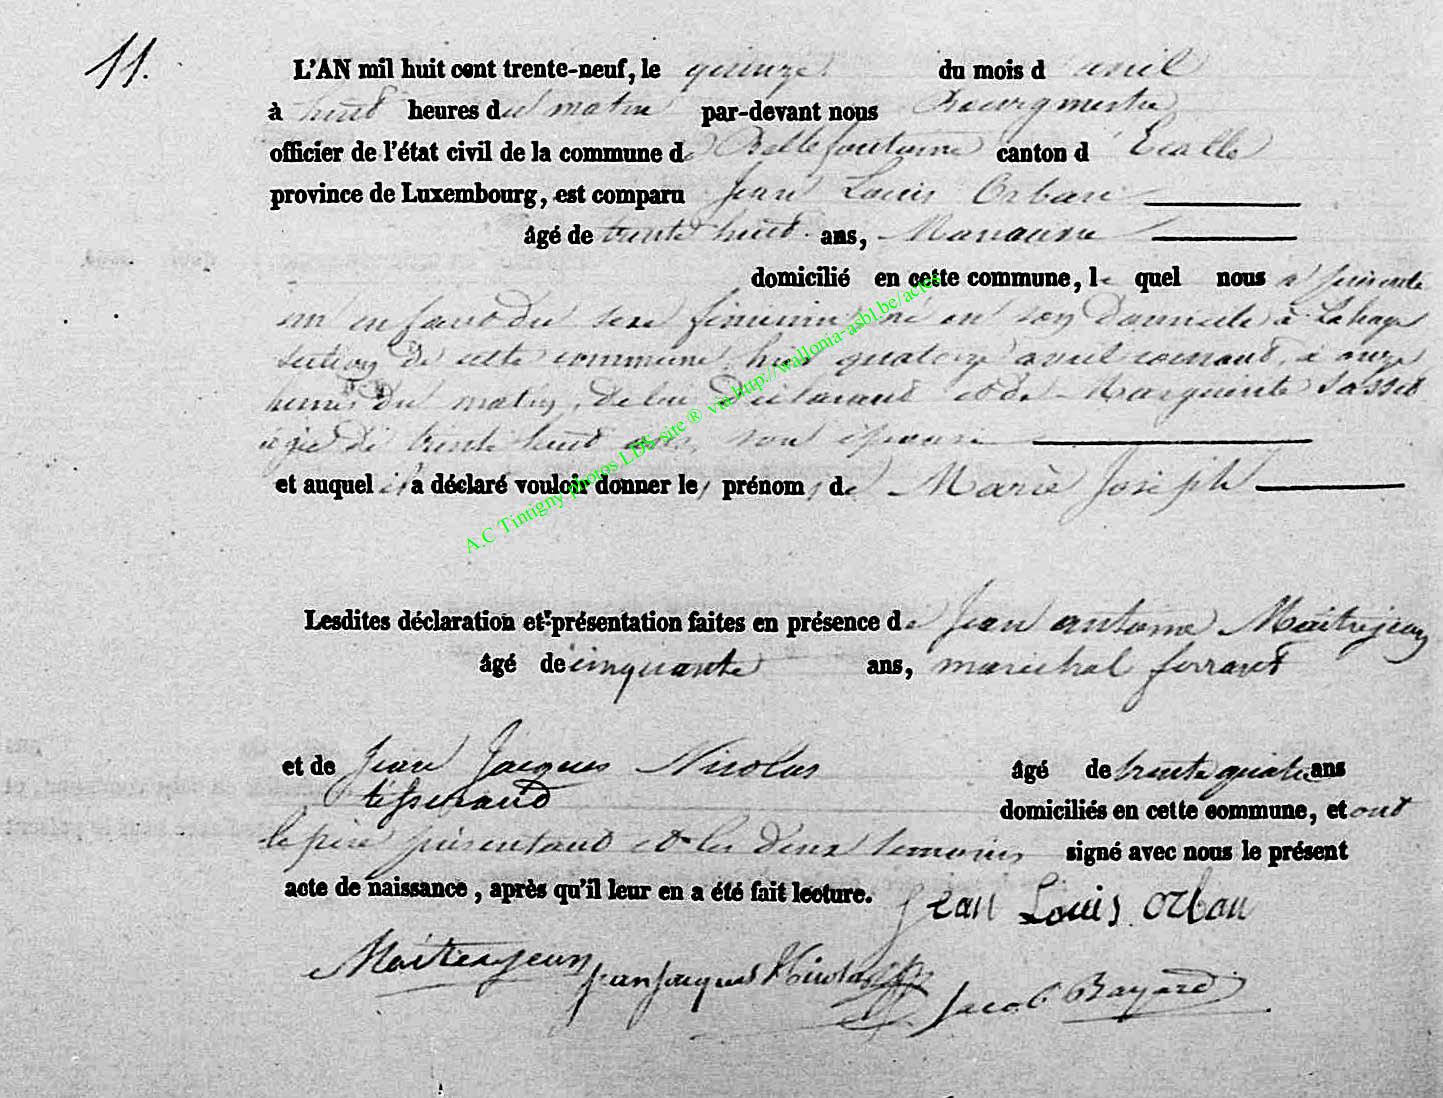 11.
L'AN mil huit cent trente-neuf, le quinze du mois d avril
à huit heures du matin par-devant nous Bourgmestre
officier de l'état civil de la commune de Bellefontaine canton d Etalle
province de Luxembourg, est comparu Jean Louis Orban
âgé de trente huit ans, Manœuvre
domicilié en cette commune, le quel nous a présenté
un enfant du sexe féminin né en son Domicile à Lahage
section de cette commune, hier quatorze avril courant, à onze
heures du matin, de lui Déclarant et de Marguerite Sosset
âgée de trente huit ans, son épouse
et auquel il a déclaré vouloir donner les prénoms de Marie Joseph
A.C Tintigny photos LDS site ® via http://wallonia-asbl.be/actes
Lesdites déclaration et présentation faites en présence de Jean antoine Maitrejean
âgé de cinquante ans, marechal ferrant
et de Jean Jacques Nicolas âgé de trente quatre ans
tisserand domiciliés en cette commune, et ont
le père présentant et les deux temoins signé avec nous le présent
acte de naissance, après qu'il leur en a été fait lecture.
Jean Louis Orban
Maitrejean Jean Jacques Nicolas Jacob Bayard